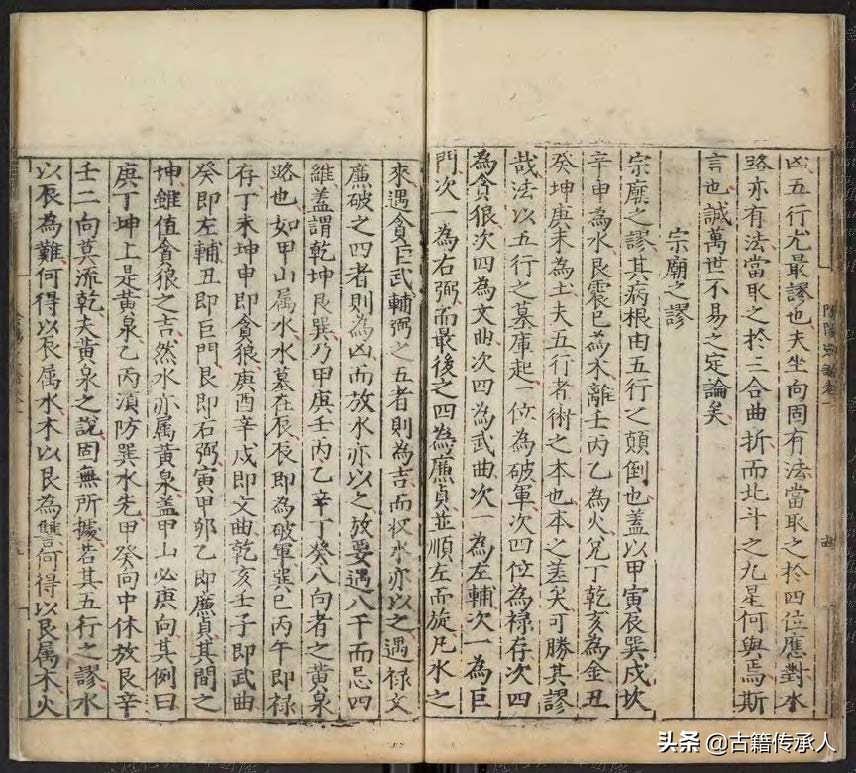 凶五行尤最謬也夫坐向固有法當取之於四位應對水
路亦有法當取之於三合曲折而北斗之九星何與焉斯
言也誠萬世不易之定論矣
宗廟之謬
宗廟之謬其病根由五行之顛倒也蓋以甲寅辰巽戌坎
辛申為水艮震巳為木離壬丙乙為火兌丁乾亥為金丑
癸坤庚未為土夫五行者術之本也本之差矣可勝其謬
哉法以五行之墓庫起一位為破軍次四位為祿存次四
為貪狼次四為文曲次四為武曲次一為左輔次一為巨
門次一為右弼而最後之四為廉貞並順左而旋凡水之
來遇貪巨武輔弼之五者則為吉而收水亦以之遇祿文
廉破之四者則為凶而放水亦以之放要遇八干而忌四
維蓋謂乾坤艮巽乃甲庚壬丙乙辛丁癸八向者之黃泉
路也如甲山属水水墓在辰辰即為破軍巽巳丙午即祿
存丁未坤申即貪狼庚酉辛戌即文曲乾亥壬子即武曲
癸即左輔丑即巨門艮即右弼寅甲卯乙即廉貞其間之
坤雖值貪狼之吉然水亦属黃泉蓋甲山必庚向其例曰
庚丁坤上是黃泉乙丙湏防巽水先甲癸向中休放艮辛
壬二向莫流乾夫黃泉之說固無所據若其五行之謬水
以辰為難何得以辰属水木以艮為讐何得以艮属木火
頭条 @古籍传承人